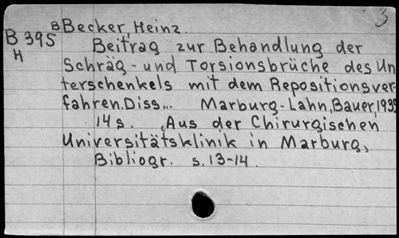 3
B Becker, Heinz.
B 395
H
Beitrag zur Behandlung der
Schräg- und Torsionsbrüche des Un
terschenkels mit dem Repositionsver-
fahren. Diss... Marburg-Lahn, Bauer, 1939
14 s. „Aus der Chirurgischen
Universitätsklinik in Marburg„
Bibliogr. s. 13-14.